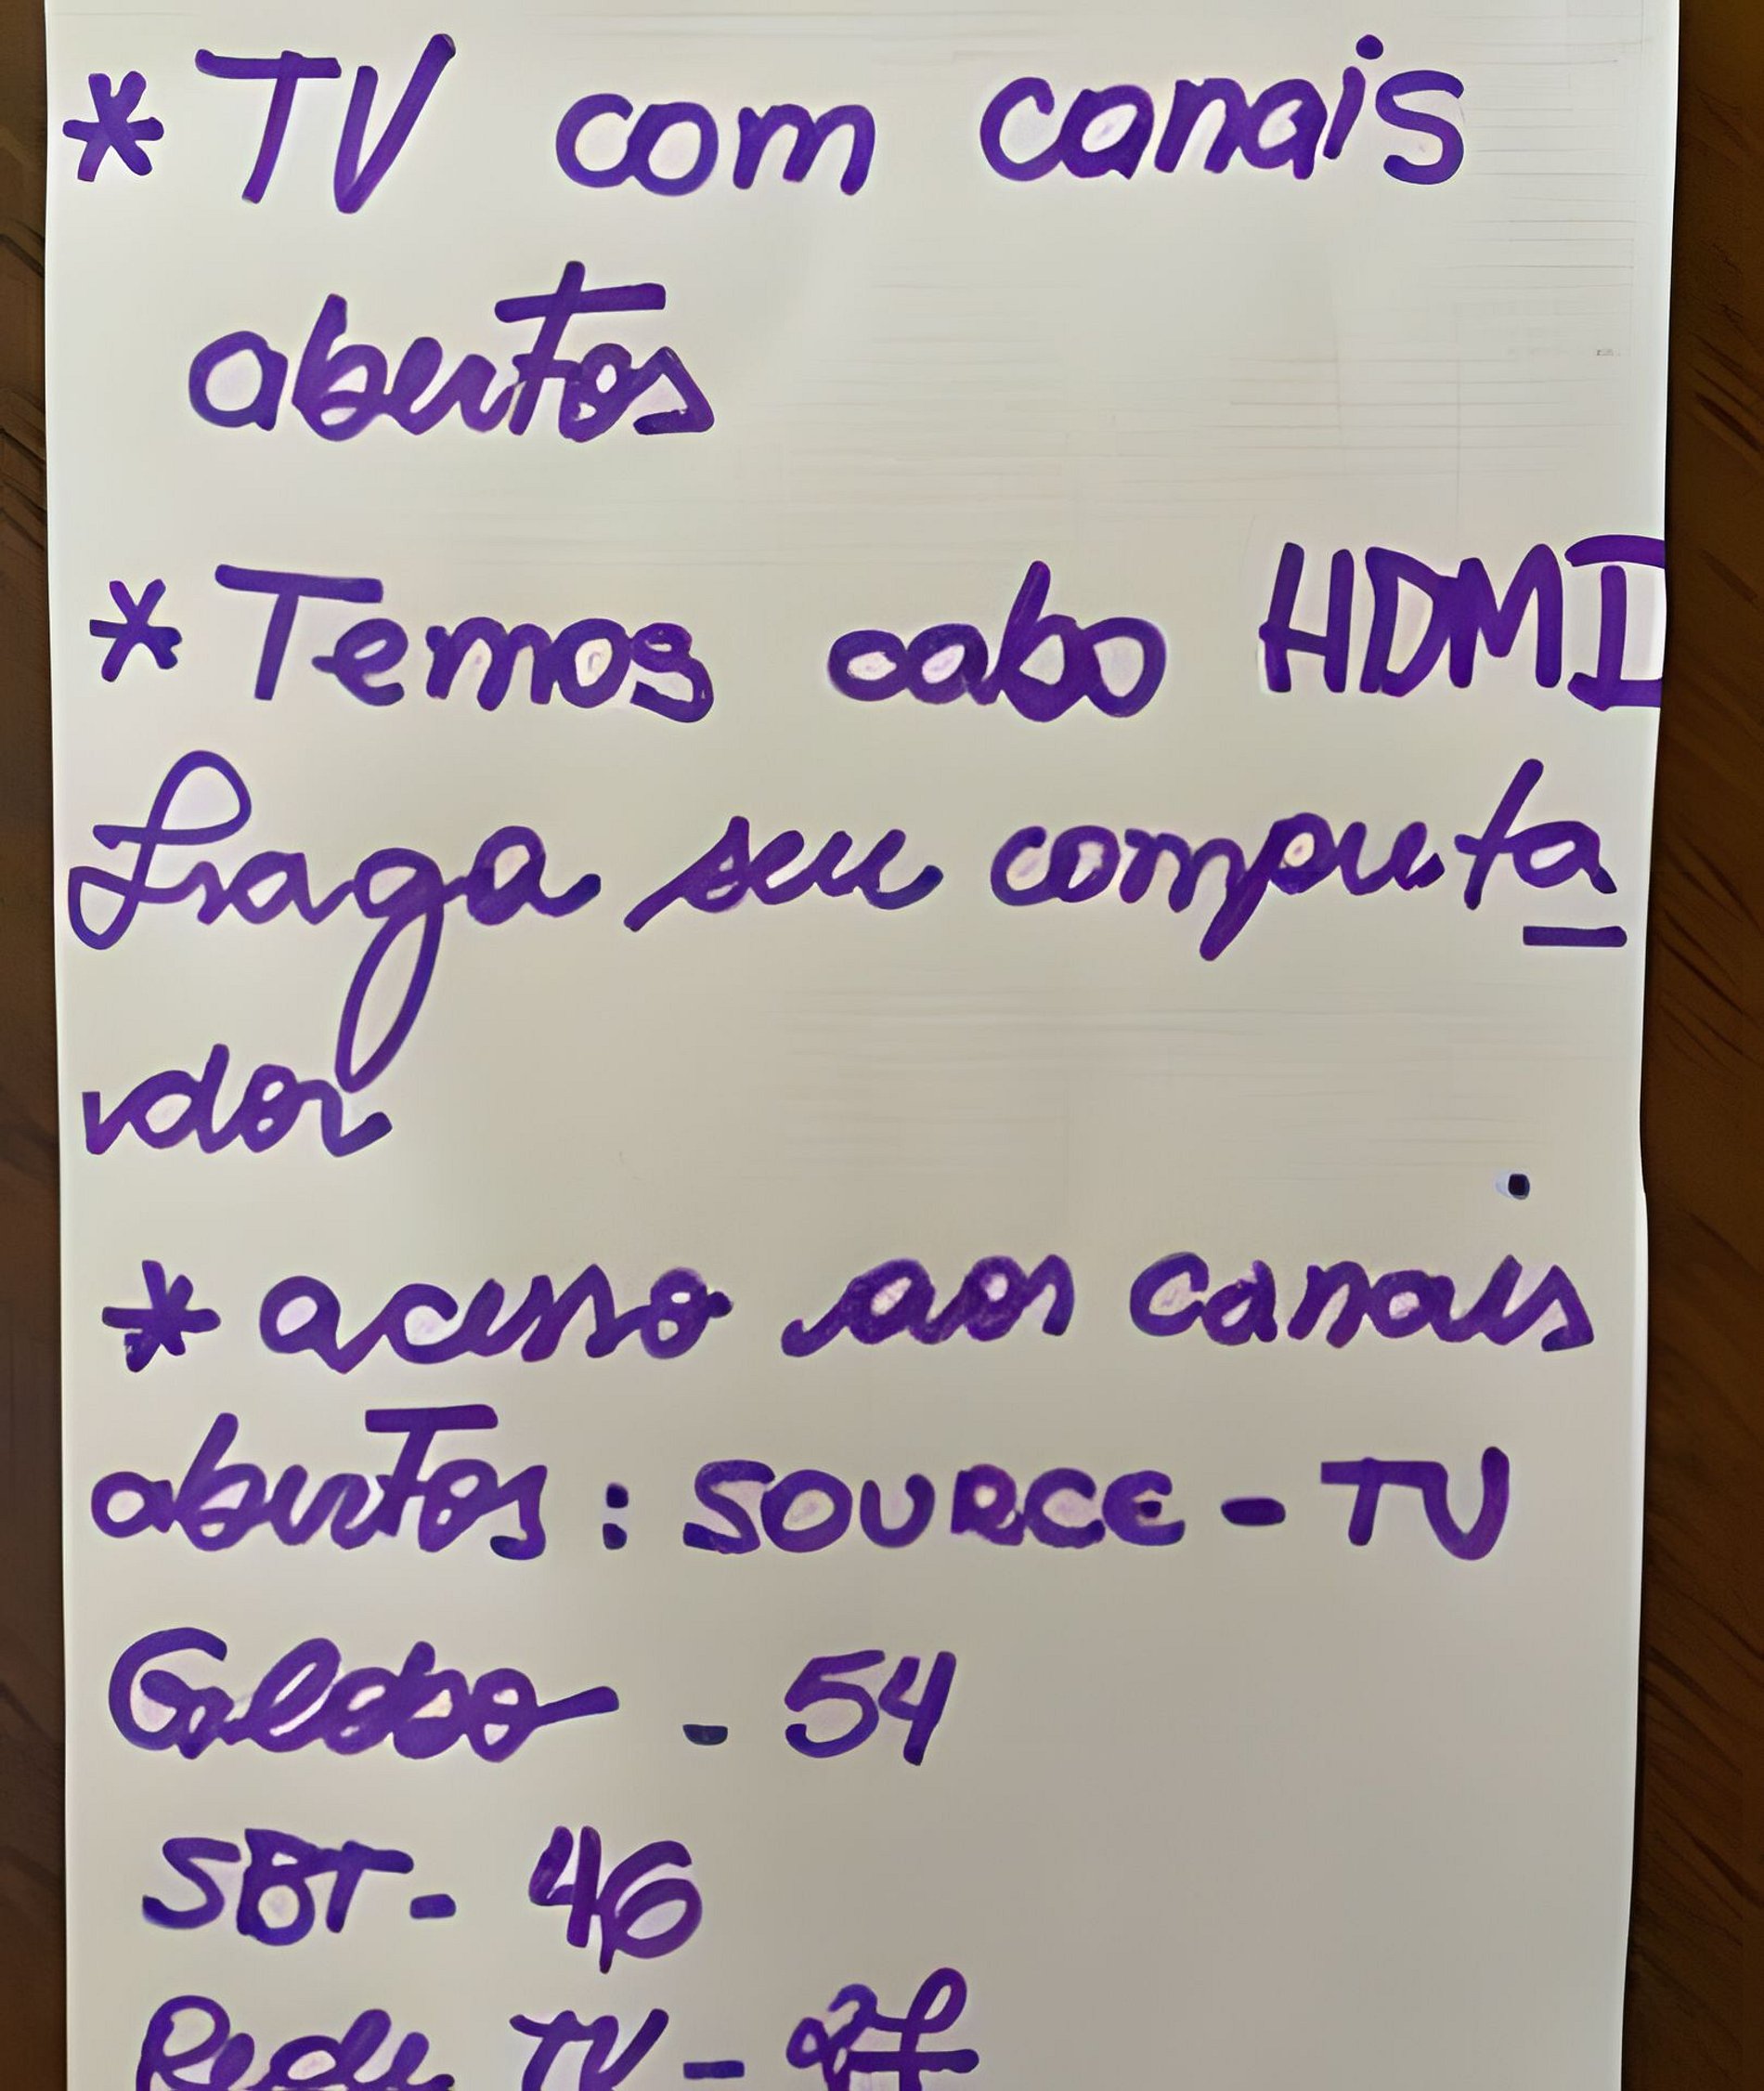 * TV com canais
abertos
* Temos cabo HDMI
traga seu computa
dor
* acesso aos canais
abertos : SOURCE - TV
Globo - 54
SBT - 46
Rede TV - 27